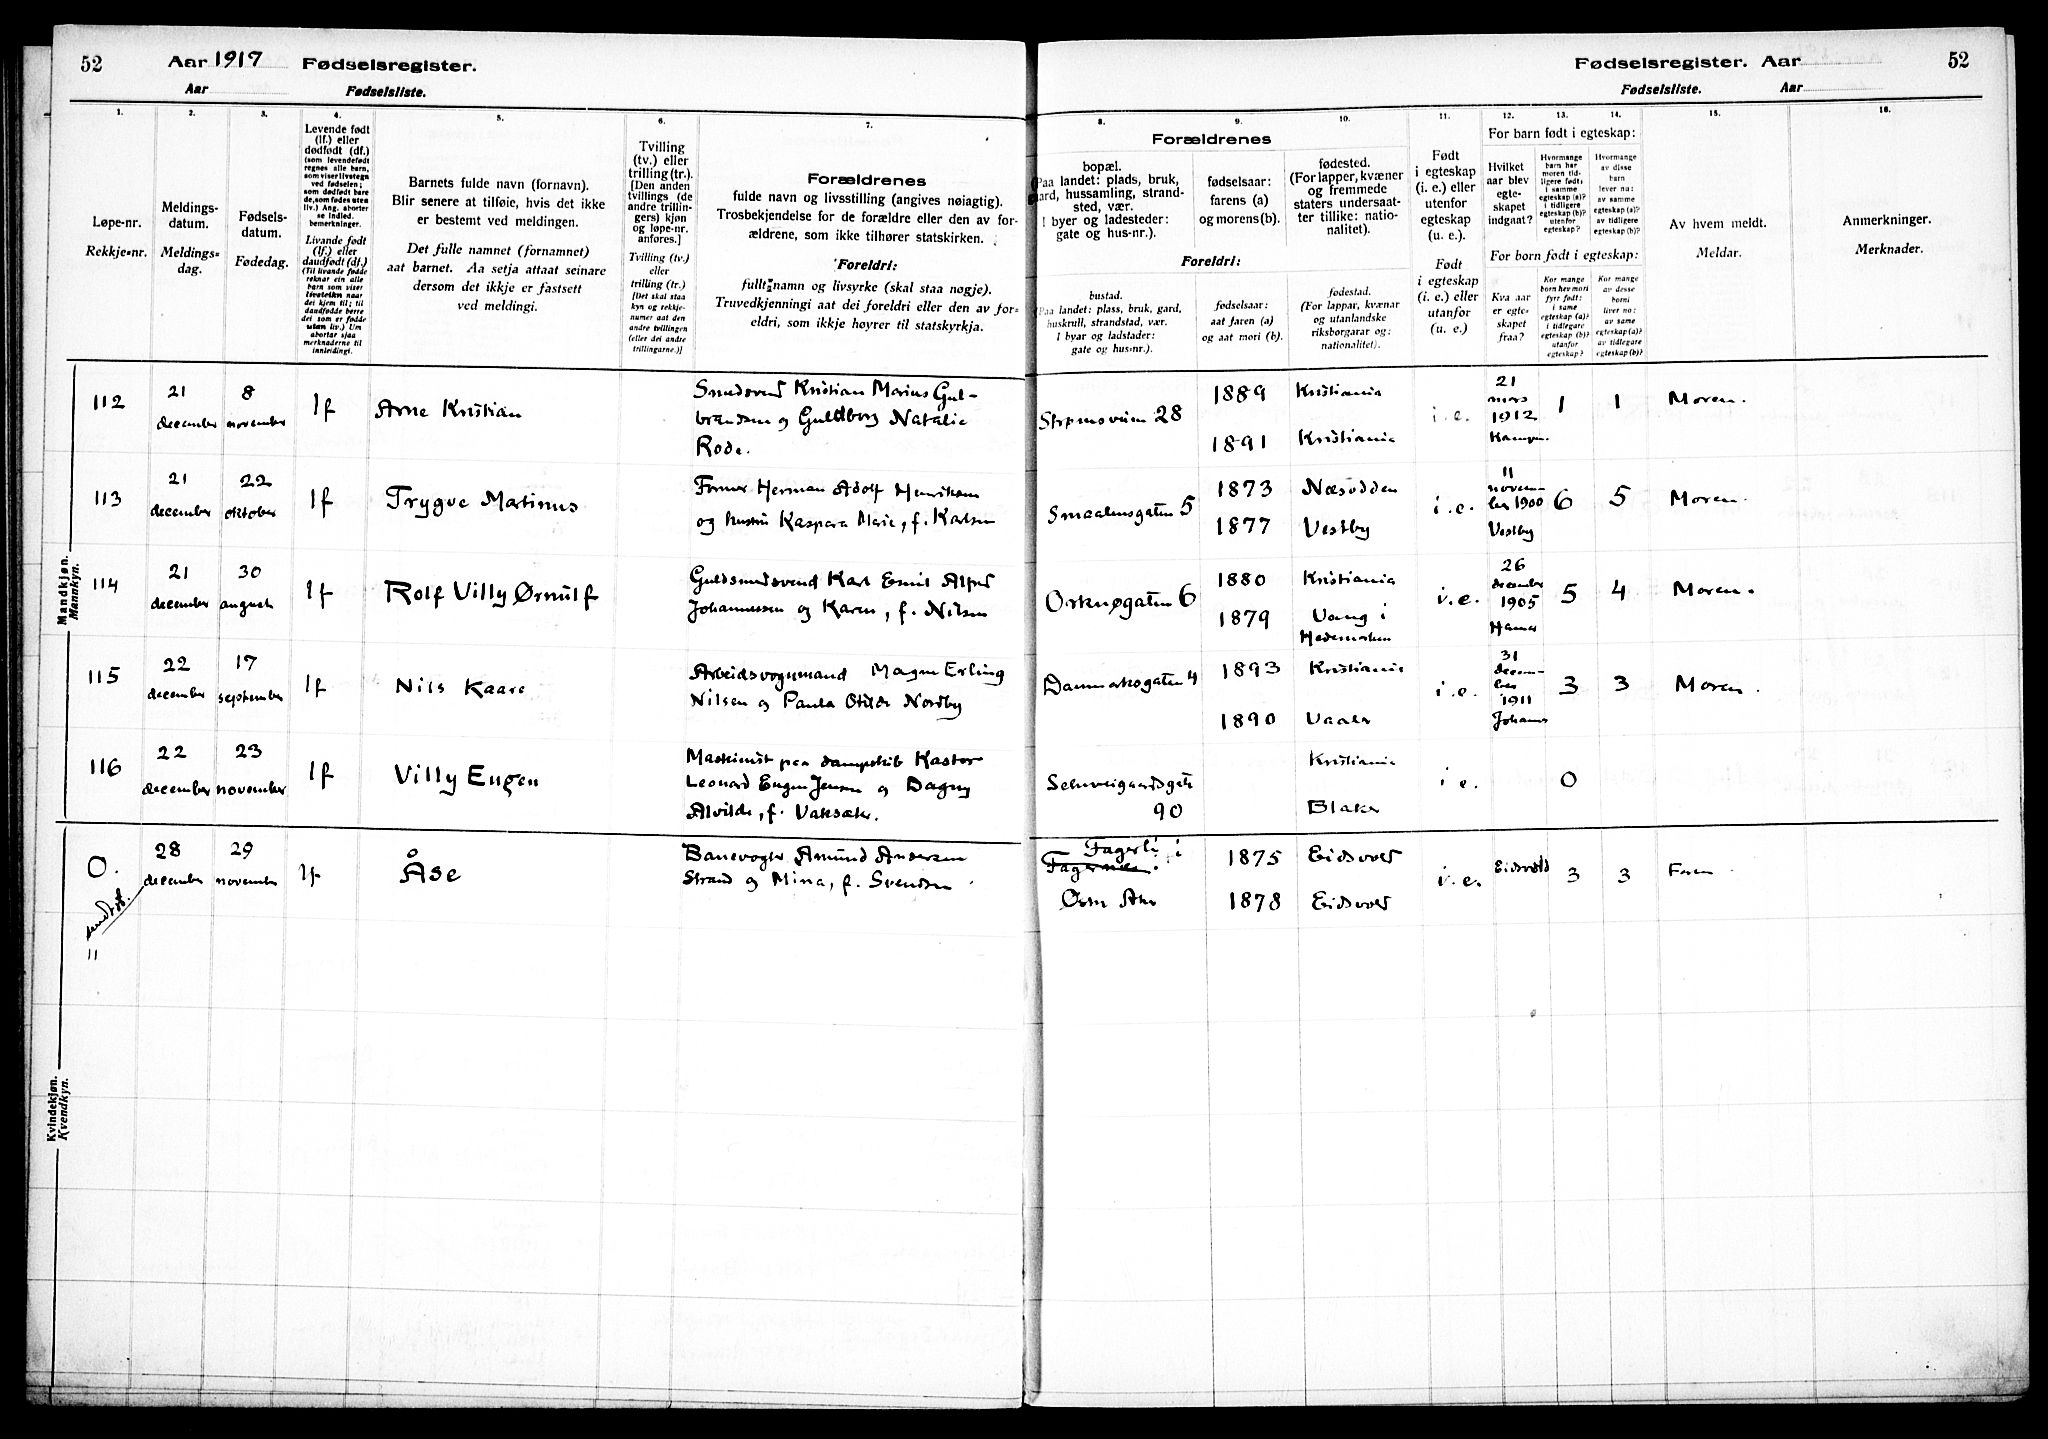 52
Aar 1917 Fødselsregister.
Aar Fødselsliste.
Fødselsregister. Aar
52
Fødselsliste. Aar
1.
Løpe-nr.
Rekkje-nr.
2.
Meldings-
datum.
Meldings-
dag.
3.
Fødsels-
datum.
Fødedag.
4.
Levende født
(lf.) eller
dødfødt (df.)
(som levendefødt
regnes alle barn,
som viser livstegn
ved fødselen;
som dødfødt bare
de, som fødes uten
liv.) Ang. aborter
se indled.
bemerkninger.
Livande født
(lf.) eller
daudfødt (df.)
(Til livande fødde
reknar ein alle
barn som viser
livsteikn naar
dei kjem til; til
daudfødde berre
dei som er fødde
utan liv.) Um
abortar sjaa
merknaderne til
innleidingi.
5.
Barnets fulde navn (fornavn).
Blir senere at tilføie, hvis det ikke
er bestemt ved meldingen.
Det fulle namnet (fornamnet)
aat barnet. Aa setja attaat seinare
dersom det ikkje er fastsett
ved meldingi.
6.
Tvilling
(tv.) eller
trilling (tr.).
[Den anden
tvillings (de
andre trillin-
gers) kjøn
og løpe-nr.
anføres.]
Tvilling (tv.)
eller
trilling (tr.)
[Det skal staa
kyn og rekkje-
numer aat den
andre tvillingen
(eller dei andre
trillingarne.)]
7.
Forældrenes
fulde navn og livsstilling (angives nøiagtig).
Trosbekjendelse for de forældre eller den av for-
ældrene, som ikke tilhører statskirken.
Foreldri:
fullt namn og livsyrke (skal staa nøgje).
Truvedkjenningi aat dei foreldri eller den av for-
eldri, som ikkje høyrer til statskyrkja.
Forældrenes
8.
bopæl.
(Paa landet: plads, bruk,
gaard, hussamling, strand-
sted, vær.
I byer og ladesteder:
gate og hus-nr.).
Foreldri:
bustad.
(Paa landet: plass, bruk, gard,
huskrull, strandstad, vær.
I byar og ladstader:
gate og hus-nr.).
9.
fødselsaar:
farens (a)
og morens (b).
fødselsaar:
aat faren (a)
og aat mori (b).
10.
fødested.
(For lapper, kvæner
og fremmede
staters undersaat-
ter tillike: natio-
nalitet).
fødestad.
(For lappar, kvænar
og utanlandske
riksborgarar og:
nationalitet).
11.
Født
i egteskap
(i. e.) eller
utenfor
egteskap
(u. e.).
Født
i egteskap
(i. e.) eller
utanfor
(u. e.)
12.
For barn født i egteskap:
Hvilket
aar blev
egte-
skapet
indgaat?
For born født i egteskap:
Kva aar
er egte-
skapet
fraa?
13.
Hvormange
barn har
moren tid-
ligere født:
i samme
egteskap (a)?
i tidligere
egteskap (b)?
utenfor
egteskap?
Kor mange
born hev mori
fyrr født:
i same
egteskap (a)?
i tidlegare
egteskap (b)?
utanfor
egteskap?
14.
Hvormange
av disse
barn
lever nu:
av samme
egteskap (a)?
av tidligere
egteskap (b)?
Kor mange
av desse
borni
liver no:
av same
egteskap (a)?
av tidlegare
egteskap (b)?
15.
Av hvem meldt.
Meldar.
16.
Anmerkninger.
Merknader.
Mandkjøn.
Mannkyn.
112 21 december 8 november lf Arne Kristian
Smedsvend Kristian Marius Gul-
brandsen og Guldborg Natalie
Rode.
Strømsveien 28 1889 Kristiania
1891 Kristiania
i. e. 21 mars 1912 Kampen. 1 1 Moren.
113 21 december 22 oktober lf Trygve Martinus
Former Herman Adolf Henriksen
og hustru Kaspara Marie, f. Karlsen
Smaalensgaten 5 1873 Næsodden
1877 Vestby
i. e. 11 novem-
ber 1900
Vestby 6 5 Moren.
114 21 december 30 august lf Rolf Villy Ørnulf
Guldsmedsvend Karl Emil Alfred
Johannessen og Karen, f. Nilsen
Orknøgaten 6 1880 Kristiania
1879 Vang i
Hedemarken
i. e. 26 december 1905 Hamar 5 4 Moren.
115 22 december 17 september lf Nils Kaare
Arbeidsvognmand Magne Erling
Nilsen og Paula Otilde Nordby
Danmarksgaten 4 1893 Kristiania
1890 Vaaler
i. e. 31 decem-
ber
1911
Johannes 3 3 Moren.
116 22 december 23 november lf Villy Eugen
Maskinist paa dampskib Kastor
Leonard Eugen Jensen og Dagny
Alvilde, f. Vaksæter.
Schweigaardsgate
90
Kristiania
Blaker
i. e. 0
Kvindekjøn.
Kvendkyn.
0. 28 december 29 november lf Åse
Banevogter Amund Andersen
Strand og Mina, f. Svendsen
Fagerli i
Østre Aker
1875 Eidsvold
1878 Eidsvold
i. e. Eidsvold 3 3 Faren
11